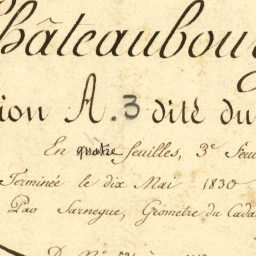 Châteaubou
ion A.3 dite du
En quatre feuilles, 3e Feu
Terminée le dix Mai 1830
Par Sarnegue, Géomètre du Cada